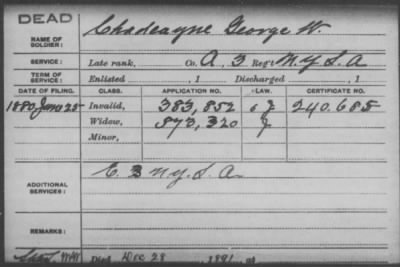 DEAD
NAME OF SOLDIER: Chadeayne George W.
SERVICE: Late rank, Co. A, 3 Reg't N.Y.L.A
TERM OF SERVICE: Enlisted , 1 Discharged , 1
DATE OF FILING. CLASS. APPLICATION NO. LAW. CERTIFICATE NO.
1880 June 25 Invalid, 383,852 240.685
Widow, 573,320
Minor,
ADDITIONAL SERVICES: E. 3 N.Y.L.A.
REMARKS:
Died Dec 28 , 1891, at